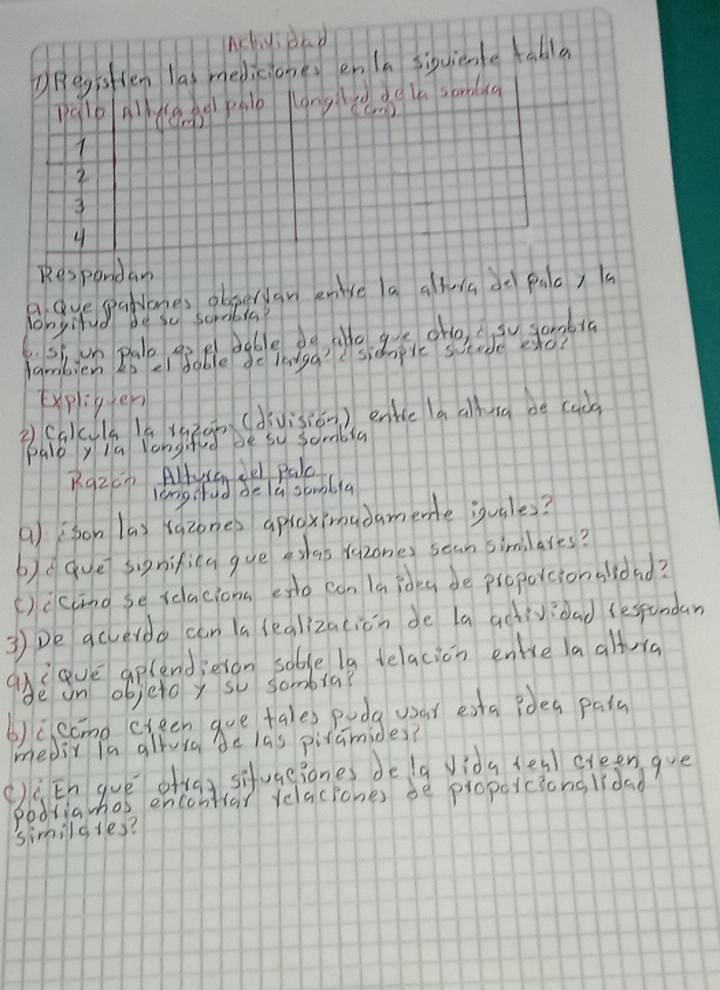 Actividad
1) Registren las mediciones en la siguiente tabla
Palo Altura del palo (cm) Longitud de la sombra (cm)
1
2
3
4
Respondan
a. Que patrones observan entre la altura del palo y la
longitud de su sombra?
b. Si un palo es el doble de alto que otro, ¿su sombra
tambien es el doble de larga? ¿siempre sucede esto?
Expliquen
2) Calcula la razon (división) entre la altura de cada
palo y la longitud de su sombra
Razón Altura del palo
longitud de la sombra
a) ¿son las razones aproximadamente iguales?
b) ¿Qué significa que estas razones sean similares?
c) ¿Cómo se relaciona esto con la idea de proporcionalidad?
3) De acuerdo con la realización de la actividad respondan
a) ¿qué aprendieron sobre la relación entre la altura
de un objeto y su sombra?
b) ¿cómo creen que tales pudo usar esta idea para
medir la altura de las pirámides?
c) ¿En qué otras situaciones de la vida real creen que
podriamos encontrar relaciones de proporcionalidad
similares?